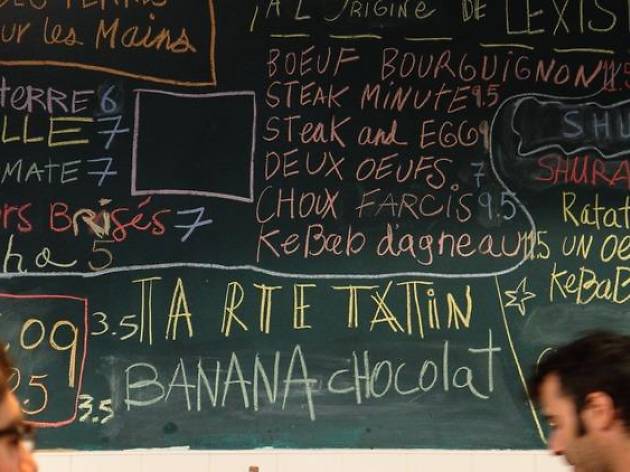 ur les Mains
A L'ORIGINE DE LEXIS
BOEUF BOURGUIGNON 11.5
STEAK MINUTE 9.5
STEAK and EGG 9
DEUX OEUFS 7
CHOUX FARCIS 9.5
KEBAB d'agneau 11.5
TERRE 6
LLE 7
MATE 7
RS BRISÉS 7
ho 5
SHU
SHURA
Ratat
UN OE
KEBAB
3.5 TARTE TATIN
3.5 BANANA CHOCOLAT
.09
.5